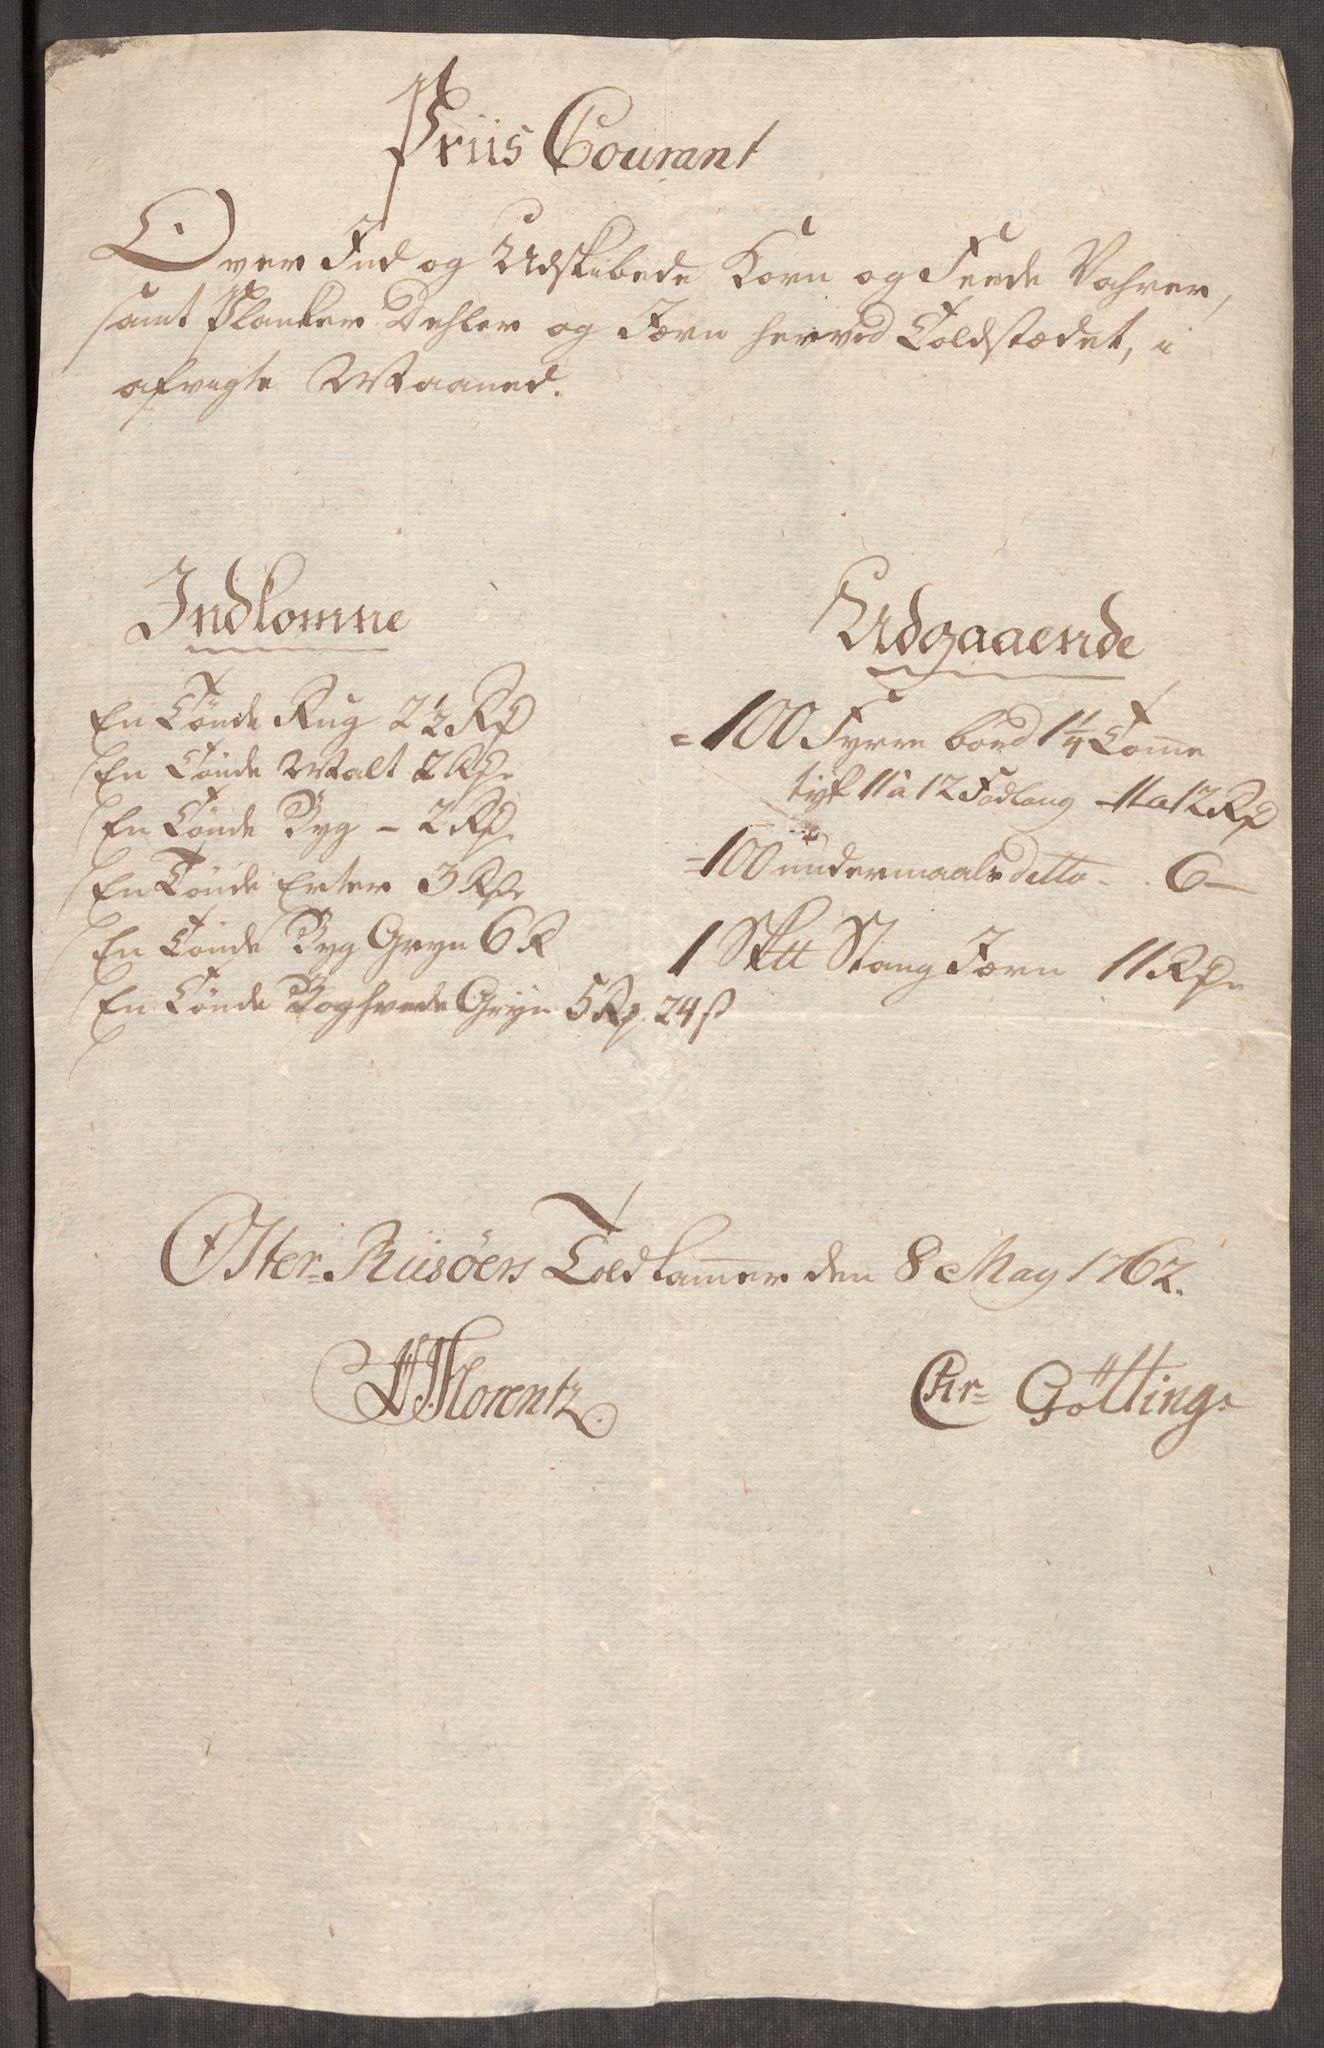 Priis Courant
Over Ind og Udskibede Korn og Feede Vahrer,
samt Planker Dehler og Jærn herved Toldstædet, i
afvigte Maaned.
Indkomne
En Tönde Rug 2 1/2 Rd
En Tönde Malt 2 Rd.
En Tönde Byg - 2 Rd.
En Tönde Erter 3 Rd.
En Tönde Byg Gryn 6 R
En Tönde Boghvede Gryn 5 Rd. 24 ß
Udgaaende
= 100 Fyrre bord 1 1/4 Tomme
tyk 11 à 12 Fod lang - 11 a 12 Rd
= 100 undermaals detto - . 6 -
1 Sktt Stang Jærn 11 Rd.
Öster-Riisöers Told kammer den 8 May 1762.
Florentz.
Chr= Götting.